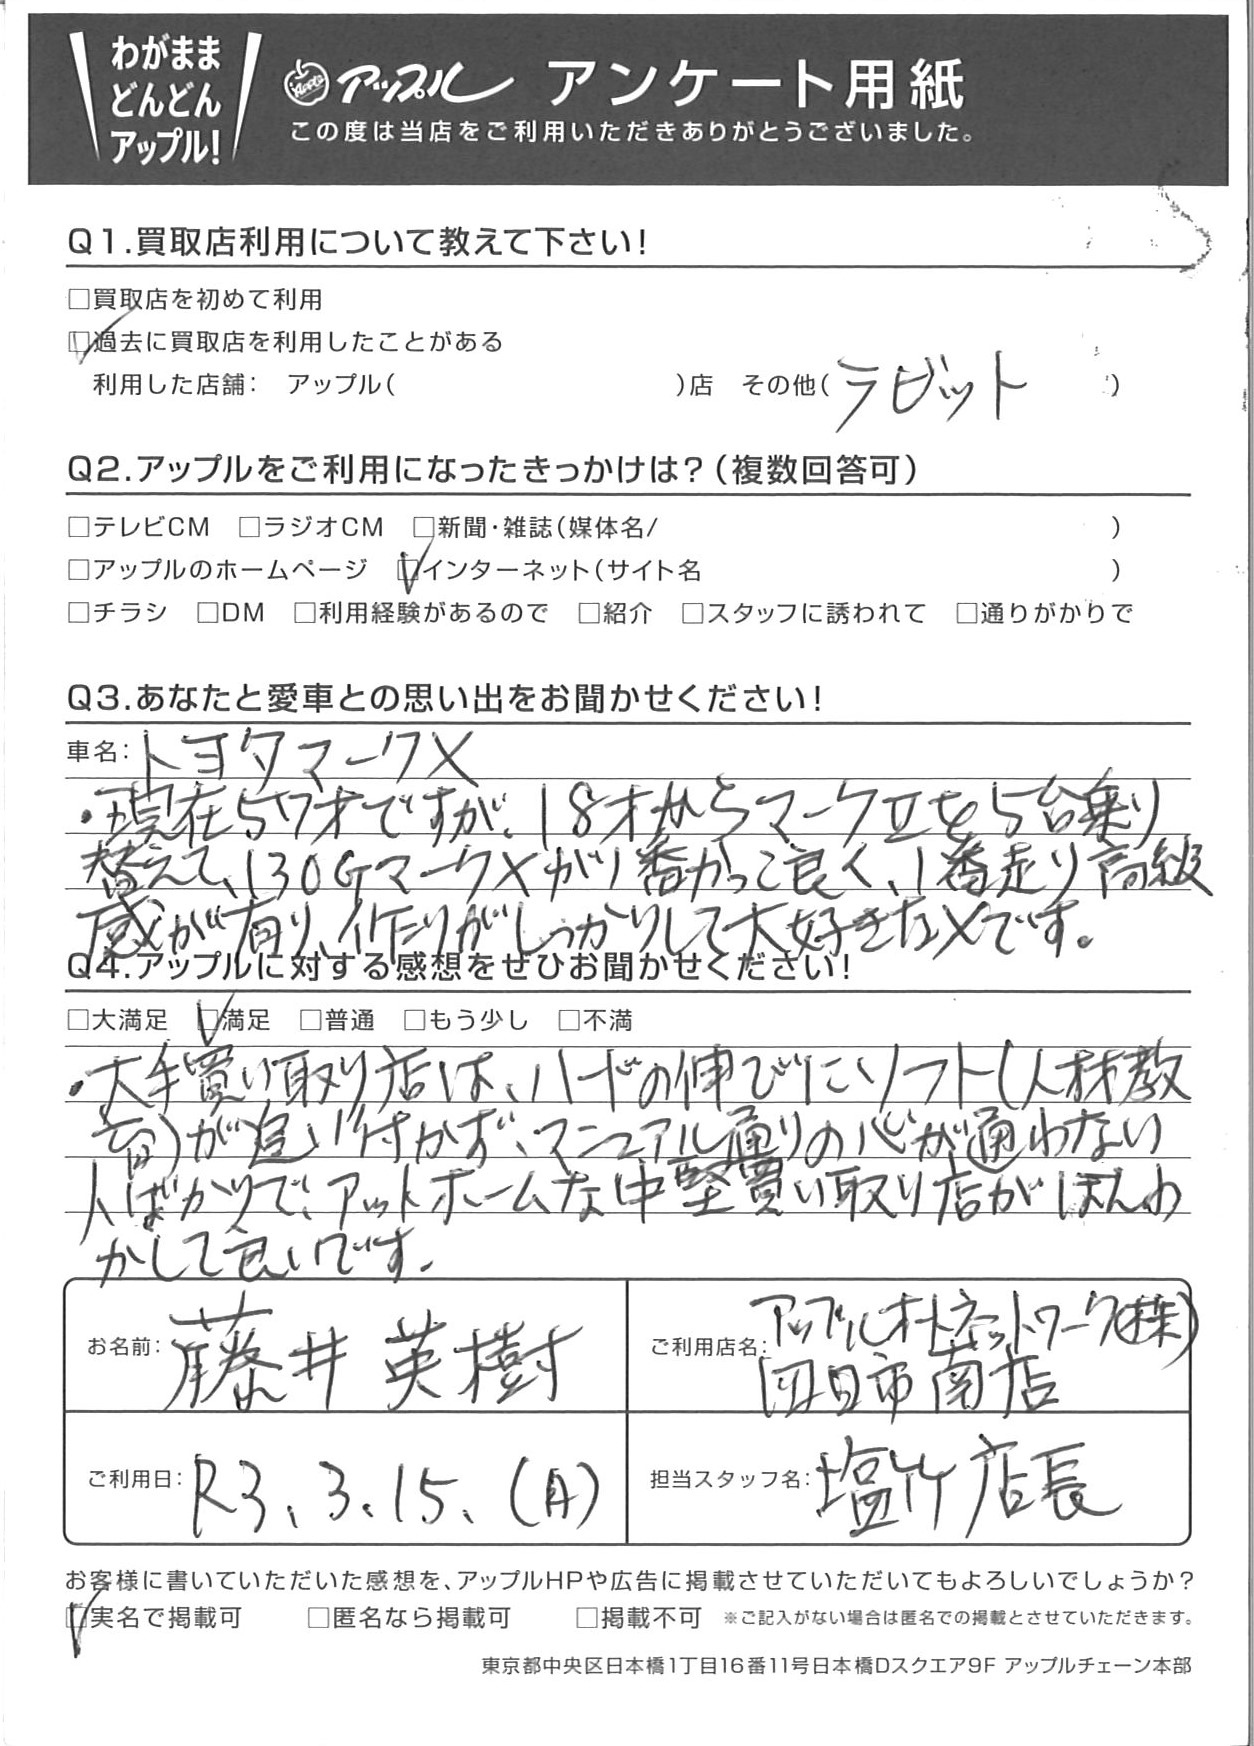 わがまま
どんどん
アップル!
アップル アンケート用紙
この度は当店をご利用いただきありがとうございました。
Q1.買取店利用について教えて下さい!
□買取店を初めて利用
☑過去に買取店を利用したことがある
利用した店舗: アップル( )店 その他(ラビット)
Q2.アップルをご利用になったきっかけは?(複数回答可)
□テレビCM □ラジオCM □新聞・雑誌(媒体名/ )
□アップルのホームページ ☑インターネット(サイト名 )
□チラシ □DM □利用経験があるので □紹介 □スタッフに誘われて □通りがかりで
Q3.あなたと愛車との思い出をお聞かせください!
車名:トヨタマークX
・現在57才ですが、18才からマークⅡを5台乗り
替えて、130GマークXがり番かっこ良く、1番走り高級
感が有り、作りがしっかりして大好きなXです。
Q4.アップルに対する感想をぜひお聞かせください!
□大満足 ☑満足 □普通 □もう少し □不満
・大手買い取り店は、ハードの伸びにソフト(人材教
育)が追い付かず、マニュアル通りの心が通わない
人ばかりで、アットホームな中堅買い取り店がほんわ
かして良いです。
お名前:藤井 英樹
ご利用店名:アップルオートネットワーク(株)
四日市南店
ご利用日:R3.3.15.(月)
担当スタッフ名:塩竹店長
お客様に書いていただいた感想を、アップルHPや広告に掲載させていただいてもよろしいでしょうか?
☑実名で掲載可 □匿名なら掲載可 □掲載不可 ※ご記入がない場合は匿名での掲載とさせていただきます。
東京都中央区日本橋1丁目16番11号日本橋Dスクエア9F アップルチェーン本部